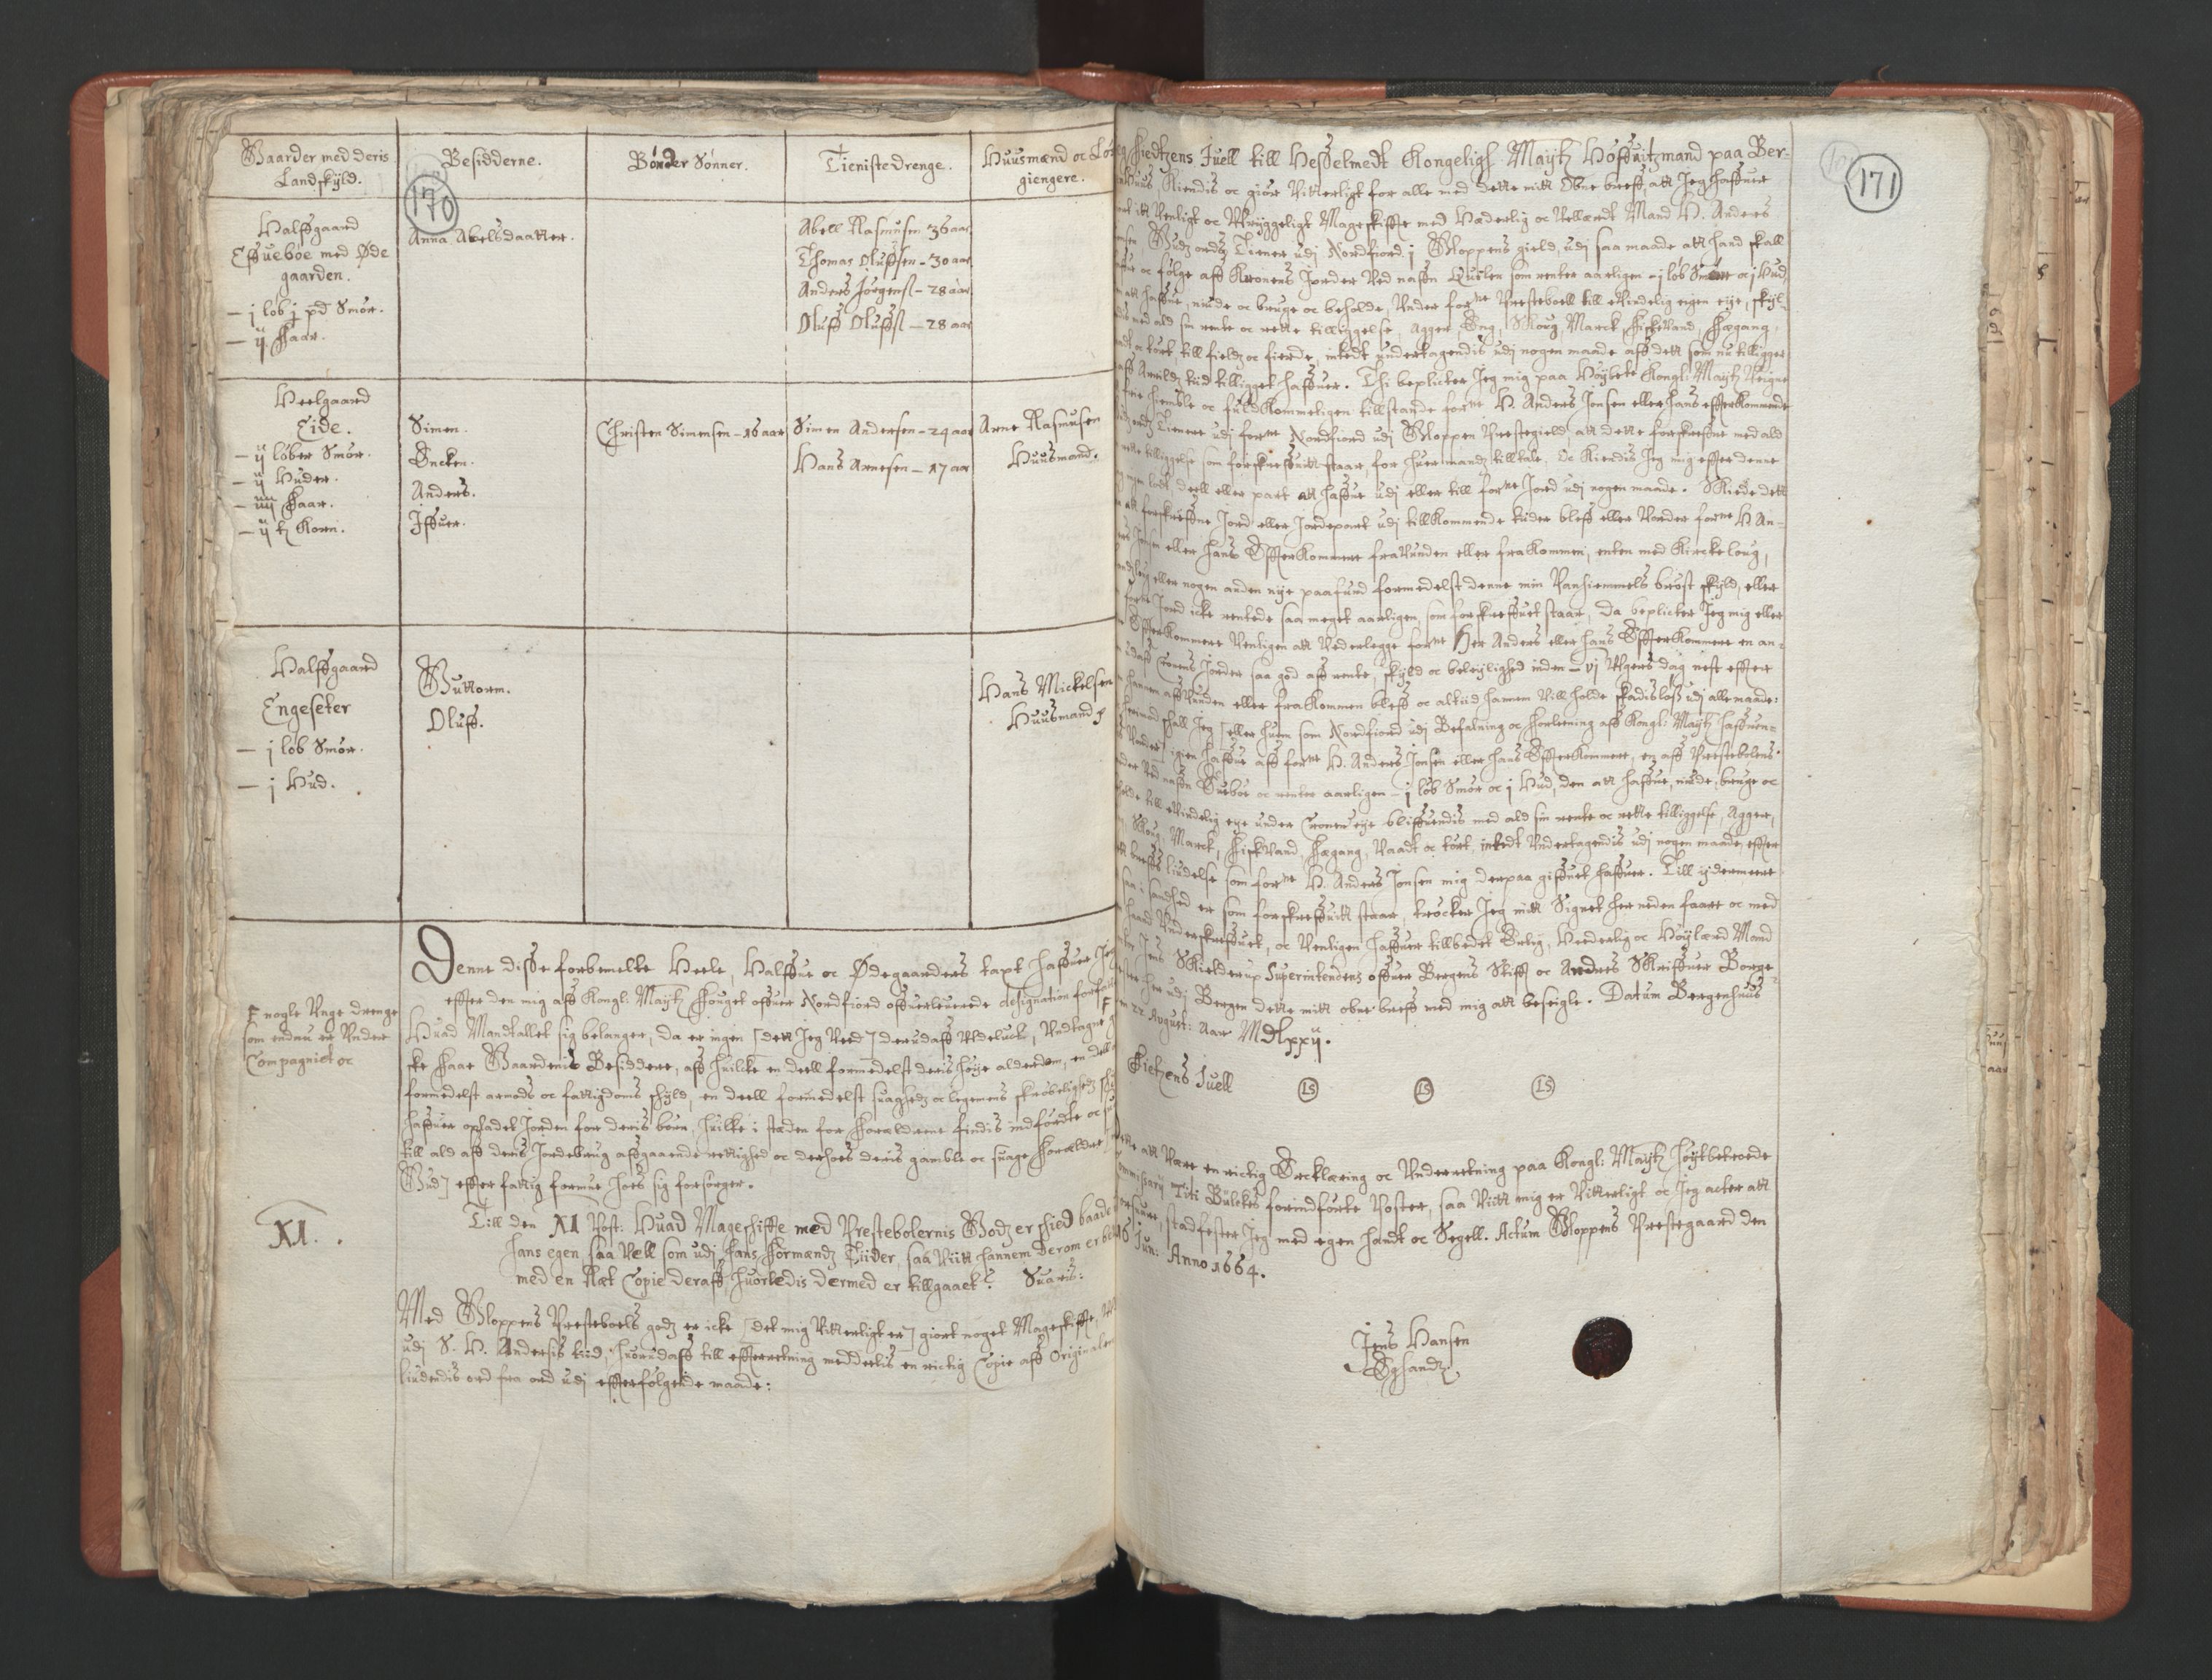 Gaarder med deris
Landskÿld.
Besidderne.
Bønder Sønner.
Tienistedrenge.
Huusmænd oc Løs
giengere.
170
Halffgaard
Effuebøe med Øde
gaarden.
– j løb j pd Smør.
– ij Faar.
Anna Abelsdaatter.
Abell Rasmusen 36 aar
Thomas Oluffsen – 30 aar
Anders Jörgens – 28 aar
Oluff Oluffs – 28 aar
Heelgaard
Eide.
– ij løber Smør.
– ij Huder.
– iiij Faar.
– ij tz Korn.
Simen.
Encken.
Anders.
Iffuer.
Christen Simensen – 16 aar
Simen Andersen – 24 aar
Hans Arnesen – 17 aar
Arne Rasmusen
Huusmand.
Halffgaard
Engeseter
– j løb Smør.
– j Hud.
Guttorm.
Oluff.
Hans Mickelsen
Huusmand
Denne disse forbemelte Heele, Halffue oc Ødegaarders taxt haffuer Jeg
effter den mig aff Kongl: Maytz Fouget offuer Nordfiord offuerleuerede designation forfatt
Huad Mandtallet sig belanger, da er ingen [dett Jeg Veed] derudaff Vdeluckt, Undtagne
ske faar Gaardenis Besiddere, aff huilcke en deell formedelst deris høye alderdom, en deell
formedelst armods oc fattigdoms skyld, en deell formedelst suaghedz oc legemens skrøbelighedz
haffuer opladet Jorden for deris børn, huilke i steden for Forældrene findis indførdte oc
till ald aff deris Jordebrug affgaaende rettighed oc derhoes deris gamble oc suage Forældre
Gud] effter fattig formue hoes sig forsørger.
nogle Unge drenge
som endnu er Under
Compagniet oc
XI.
Till den XI Post: Huad Mageskiffte med Prestebolernis Godz er skied baade
hans egen saa Vell som udj hans Formændz Tiider, saa Viitt hannem derom er
med en Ræt Copie deraff huorledis dermed er tillgaaet? Suaris:
Med Gloppens Presteboels godz er icke [det mig Vitterligt er] giort noget Mageskiffte,
udj S. H. Andersis tiid, huorudaff till effterretning meddeelis en rictig Copie aff Originalen
liudendis ord fra ord udj effterfølgende maade:
171
hiedtzens Juell till Hesselmedt Kongeligh Maytz Höffuitzmand paa Ber-
Huus Kiendis oc giør Vitterligt for alle med dette mitt Obne breff, att Jeg haffuer
itt Venligt oc Uryggeligt Mageskiffte med Hæderlig oc Vellærdt Mand H. Anders
Gudz ordz Tienere udj Nordfiord j Gloppens gield, udj saa maade att hand skall
oc følge aff Kronens Jorder Ved naffn Quilen som renter aarligen – j løb Smør oc j Hud,
att haffue, niude oc bruge oc beholde, Under forne Presteboell till evindelig eigen eye, skyl-
med ald sin rente oc rette tilliggelse, Agger, Eng, Skoug, Marck, Fiskevand, Fægang,
oc tørt, till fieldz oc fierde, intedt undertagendis udj nogen maade aff dett som nu tilligger
aff Arrildz tiid tilligget haffuer. Thi beplicter Jeg mig paa Høybete Kongl: Maytz Veigne
hiemble oc fuldkommeligen tillstande forne H. Anders Jonsen eller hans effterkommende
ordz Tienere udj forne Nordfiord udj Gloppen Prestegield, att dette forskreffne med ald
rette tilliggelse som forskreffuitt staar, for huer mandz tilltale. Oc Kiendis Jeg mig effter denne
lodt deell eller part att haffue udj eller till forne Jord udj nogen maade. Skiede dett
att forskreffne Jord eller Jordepart udj tillkommende tiider bleff eller Vorder forne H An-
eller hans Effterkommere fraVunden eller frakommen, enten med Kirckeloug,
eller nogen anden nye paafund formedelst denne min Vanhiemmels brøst skyld, eller
Jord icke rentede saa meget aarligen, som forskreffuet staar, da beplicter Jeg mig eller
Effterkommere Venligen att Vederlegge forne Her Anders eller hans Effterkommere en an-
udaff Cronens Jorder saa god aff rente, skyld oc beleylighed inden – vj Ugers dag nest effter
hannem affVunden eller frakommen bleff oc altiid hannem Vill holde skadisløss udj alle maade:
skall Jeg [eller huem som Nordfiord udj Befalning oc Forlening aff Kongl: Maytz haffuen-
igien haffue aff forne H. Anders Jonsen eller hans Effterkommere, en aff Prestebolens
Ved naffn Euebøe oc renter aarligen – j løb Smør oc j Hud, den att haffue, niude, bruge oc
till eVindelig eye under Cronens eye bliffuendis med ald sin rente oc rette tilliggelse, Agger,
Skoug, Marck, Fiskvand, Fægang, Vaadt oc tørt, intedt Undertagendis udj nogen maade, effter
breffs liudelse som forne H. Anders Jonsen mig derpaa giffuet haffuer. Till ydermere
i sandhed er som forskreffuitt staar, trøcker Jeg mitt Signet her neden faare oc med
haand Underskreffuet, oc Venligen haffuer tillbedet Erlig, Hæderlig oc Høylærd Mand
Jens Skielderup Superintendens offuer Bergens Stifft oc Andres Skriffuer Borge-
her udj Bergen dette mitt obne breff med mig att beseigle. Datum Bergenhuus
22 August: Aar MDlxxij.
Hietzens Juell
LS
LS
LS
att Være en rictig Ercklæring oc Underretning paa Kongl: Maytz Høytbetroede
Commissarij Titi Bülckes foreindførte Poster, saa Viitt mig er Vitterligt oc Jeg acter att
forsuare, stadfester Jeg med egen handt oc Segell. Actum Gloppens Prestegaard den
16 Jun: Anno 1664.
Jens Hansen
Eghandz